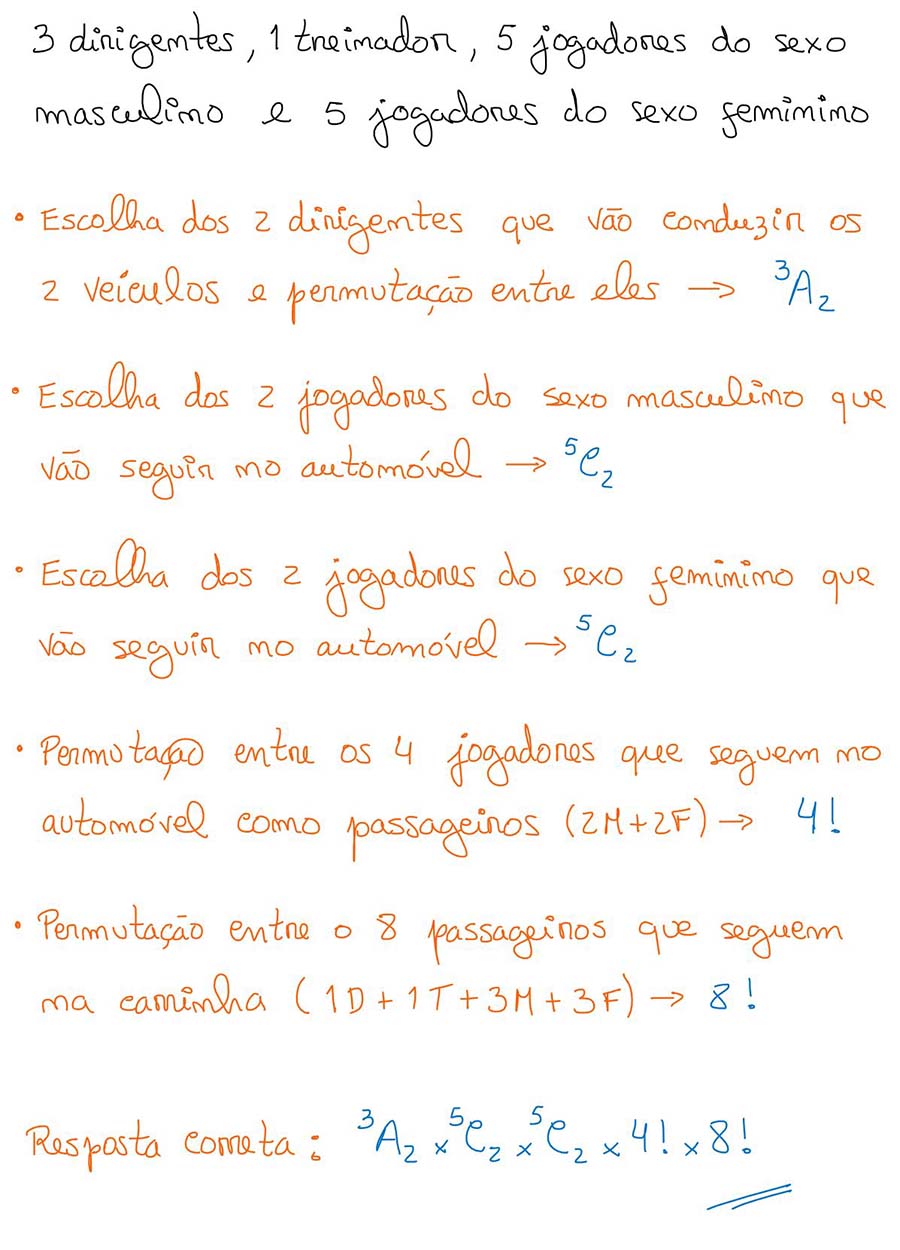 3 dirigentes, 1 treinador, 5 jogadores do sexo
masculino e 5 jogadores do sexo feminino
• Escolha dos 2 dirigentes que vão conduzir os
2 veículos e permutação entre eles → ³A₂
• Escolha dos 2 jogadores do sexo masculino que
vão seguir no automóvel → ⁵C₂
• Escolha dos 2 jogadores do sexo feminino que
vão seguir no automóvel → ⁵C₂
• Permutação entre os 4 jogadores que seguem no
automóvel como passageiros (2M+2F) → 4!
• Permutação entre o 8 passageiros que seguem
na carrinha (1D+1T+3M+3F) → 8!
Resposta correta: ³A₂ × ⁵C₂ × ⁵C₂ × 4! × 8!